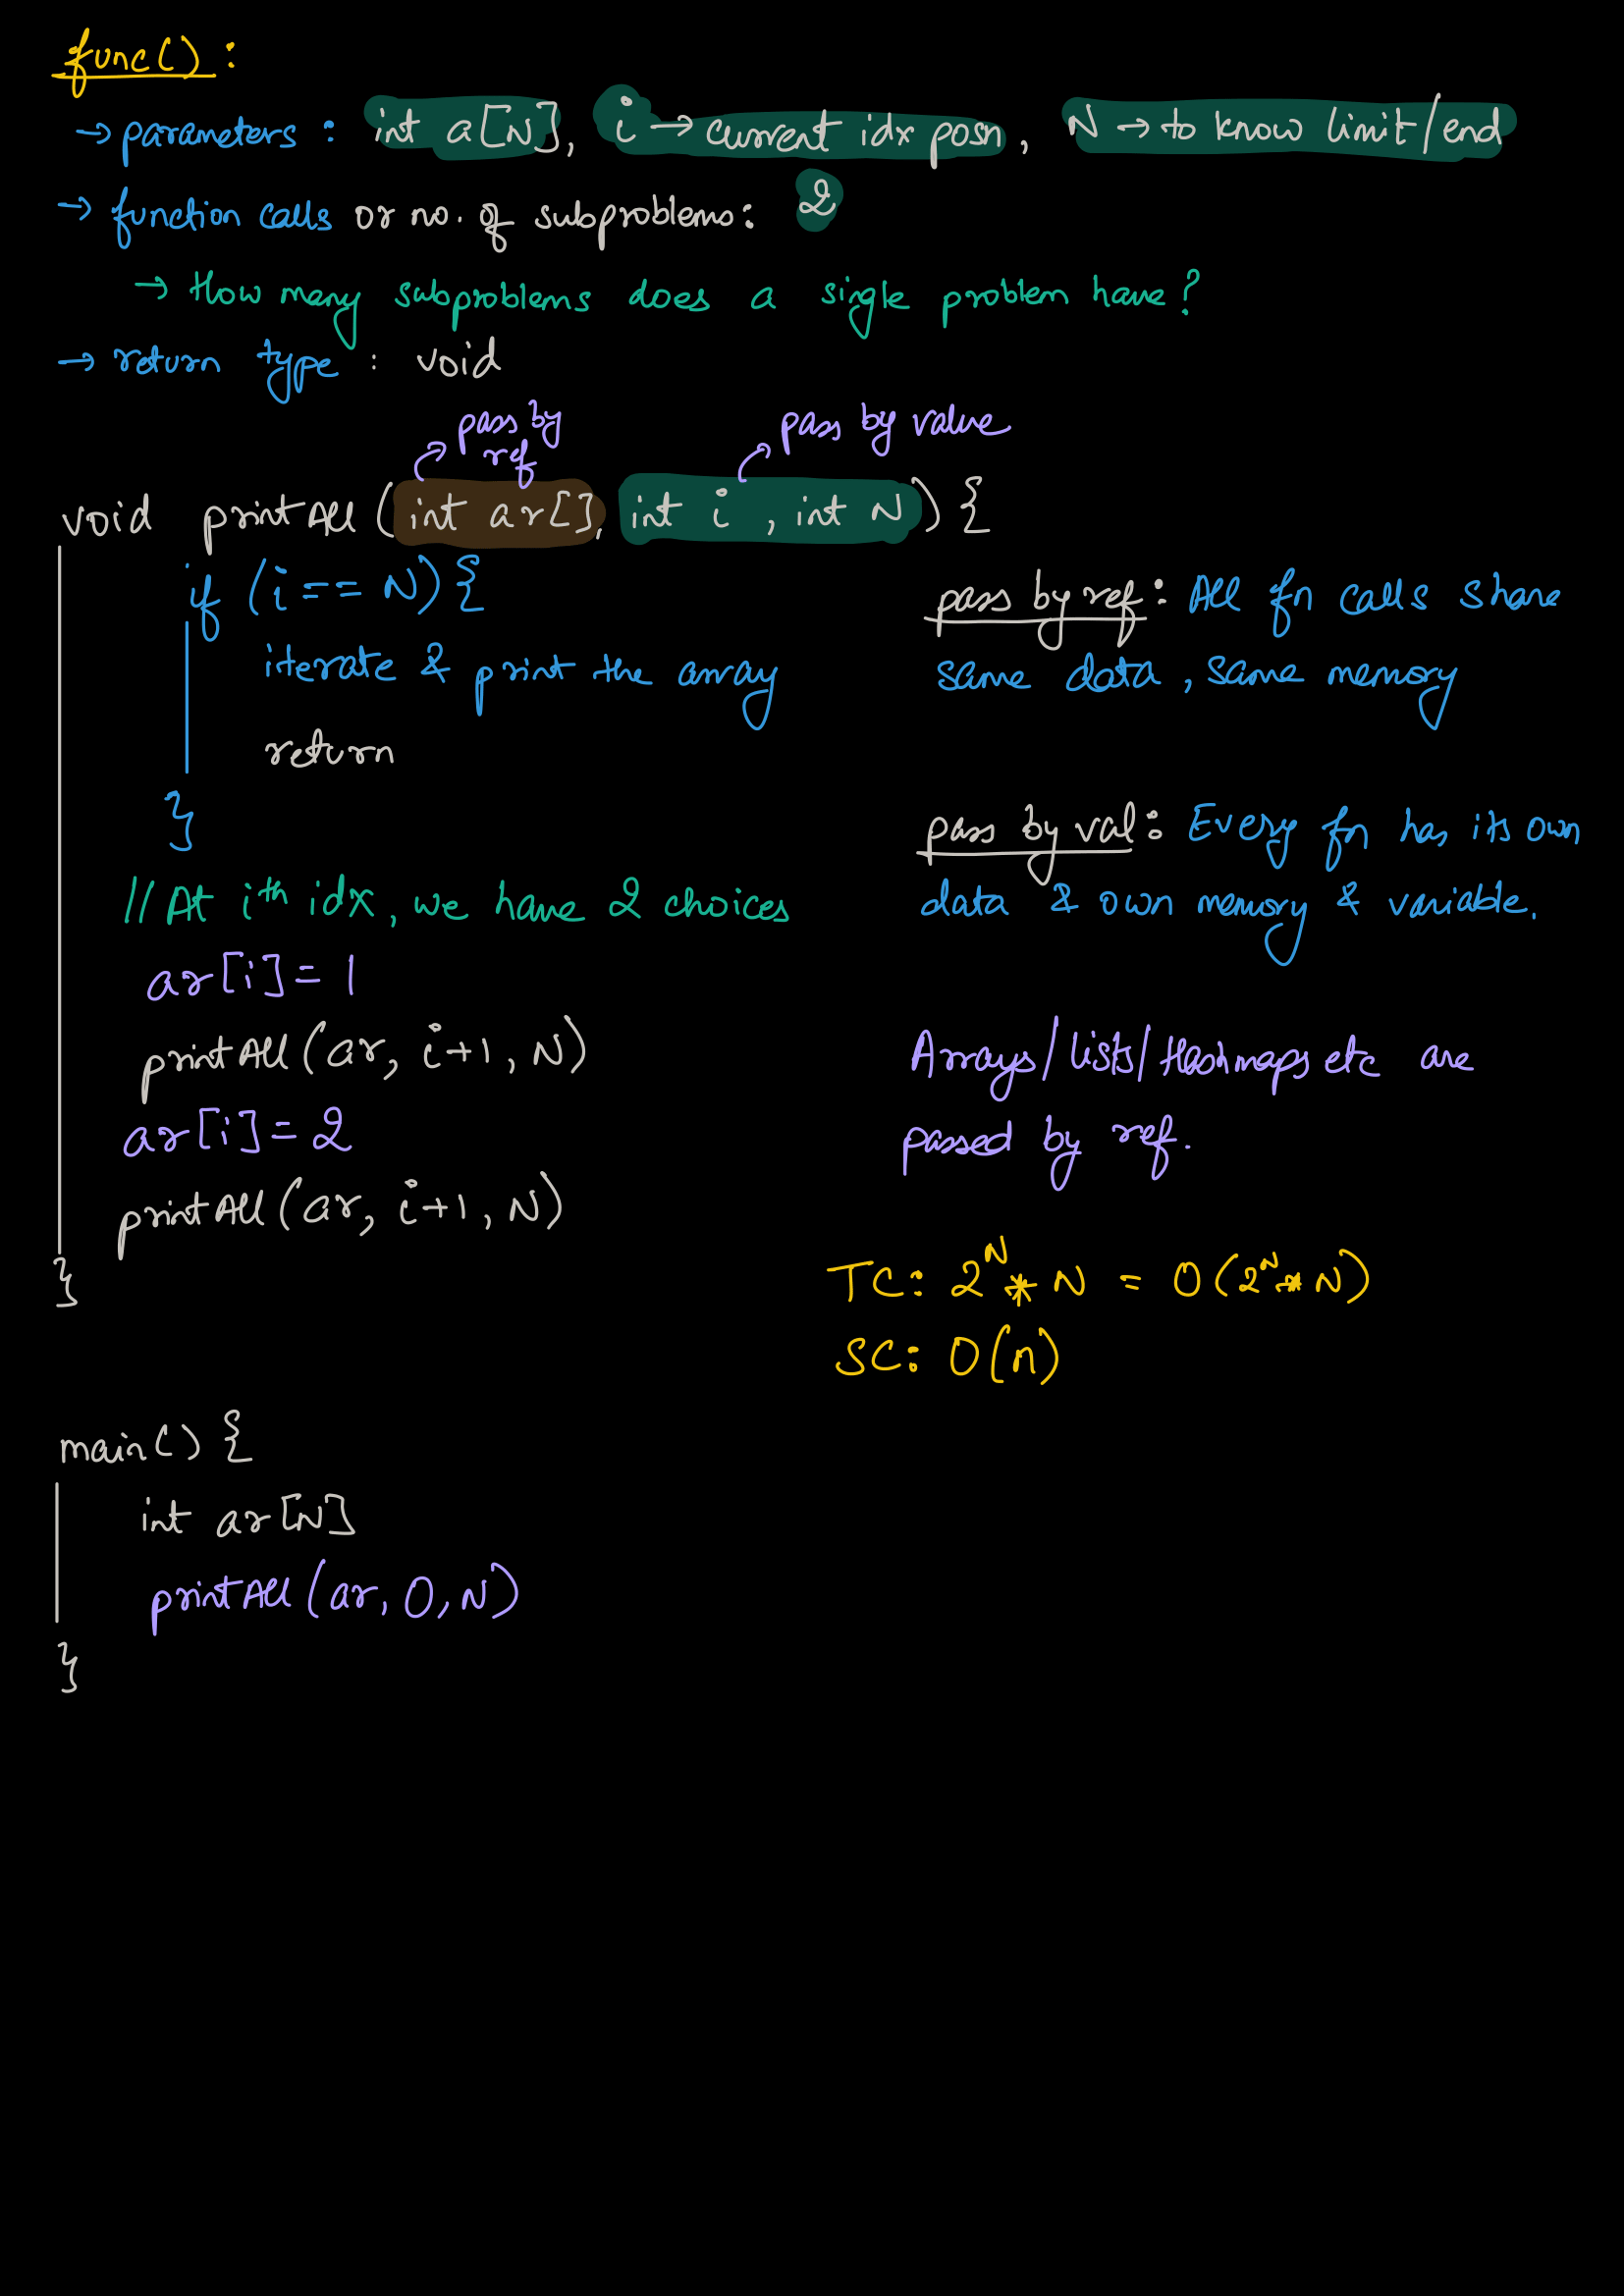 func() :
→ parameters : int a[N], i → current idx posn, N → to know limit/end
→ function calls or no. of subproblems: 2
→ How many subproblems does a single problem have?
→ return type : void
pass by ref
pass by value
void printAll (int ar[], int i , int N) {
if (i == N) {
iterate & print the array
return
}
// At ith idx, we have 2 choices
ar[i] = 1
printAll (ar, i+1, N)
ar[i] = 2
printAll (ar, i+1, N)
}
pass by ref : All fn calls share
same data, same memory
pass by val : Every fn has its own
data & own memory & variable.
Arrays/lists/Hashmaps etc are
passed by ref.
TC: 2^N * N = O(2^N * N)
SC: O(n)
main() {
int ar[N]
printAll (ar, 0, N)
}